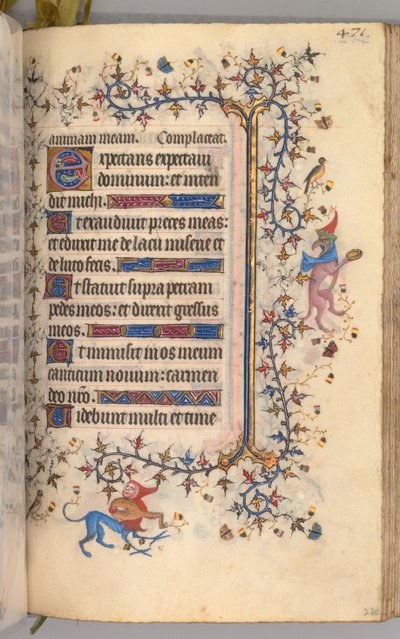 471.
animam meam. Complaceat.
Expectans expectavi
dominum: et inten
dit michi.
Et exaudivit preces meas:
et eduxit me de lacu miserie et
de luto fecis.
Et statuit supra petram
pedes meos: et direxit gressus
meos.
Et inmisit in os meum
canticum novum: carmen
deo nr̄o.
Videbunt multi et time